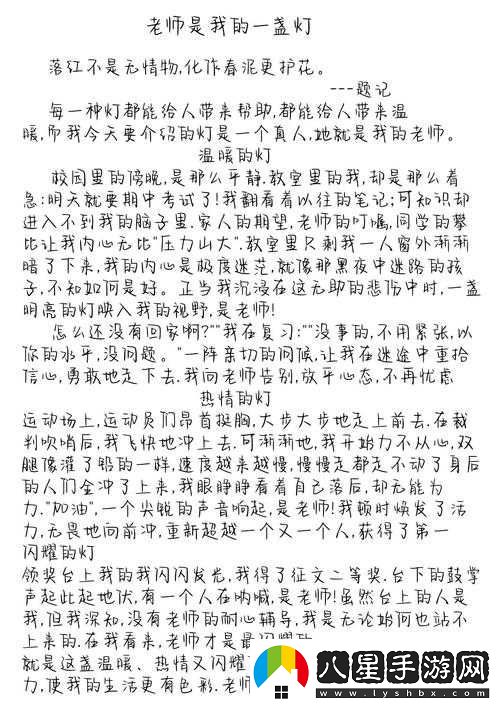 老师是我的一盏灯
落红不是无情物,化作春泥更护花。
---题记
每一种灯都能给人带来帮助,都能给人带来温
暖,而我今天要介绍的灯是一个真人,她就是我的老师。
温暖的灯
校园里的傍晚,是那么平静.教室里的我,却是那么着
急:明天就要期中考试了!我翻看着以往的笔记;可知识却
进入不到我的脑子里.家人的期望,老师的叮嘱,同学的攀
比让我内心无比"压力山大".教室里只剩我一人窗外渐渐
暗了下来,我的内心是极度迷茫,就像那黑夜中迷路的孩
子,不知如何是好。正当我沉浸在这无助的悲伤中时,一盏
明亮的灯映入我的视野,是老师!
怎么还没有回家啊?""我在复习:""没事的,不用紧张,以
你的水平,没问题。"一阵亲切的问候,让我在迷途中重拾
信心,勇敢地走下去.我向老师告别,放平心态,不再忧虑
热情的灯
运动场上,运动员们昂首挺胸,大步大步地走上前去.在裁
判吹哨后,我飞快地冲上去.可渐渐地,我开始力不从心,双
腿像灌了铅的一样,速度越来越慢,慢慢走都走不动了身后
的人们全冲了上来,我眼睁睁看着自己落后,却无能为
力."加油",一个尖锐的声音响起,是老师!我顿时焕发了活
力,无畏地向前冲,重新超越一个又一个人,获得了第一
闪耀的灯
领奖台上我的我闪闪发光,我得了征文二等奖.台下的鼓掌
声起此起地伏,有一个人在呐喊,是老师!虽然台上的人是
我,但我深知,没有老师的耐心辅导,我是无论始何也站不
上来的.在我看来,老师才是最闪耀的
就是这盏温暖、热情又闪耀
力,使我的生活更有色彩.老师
八星手游网
www.lyshbx.com